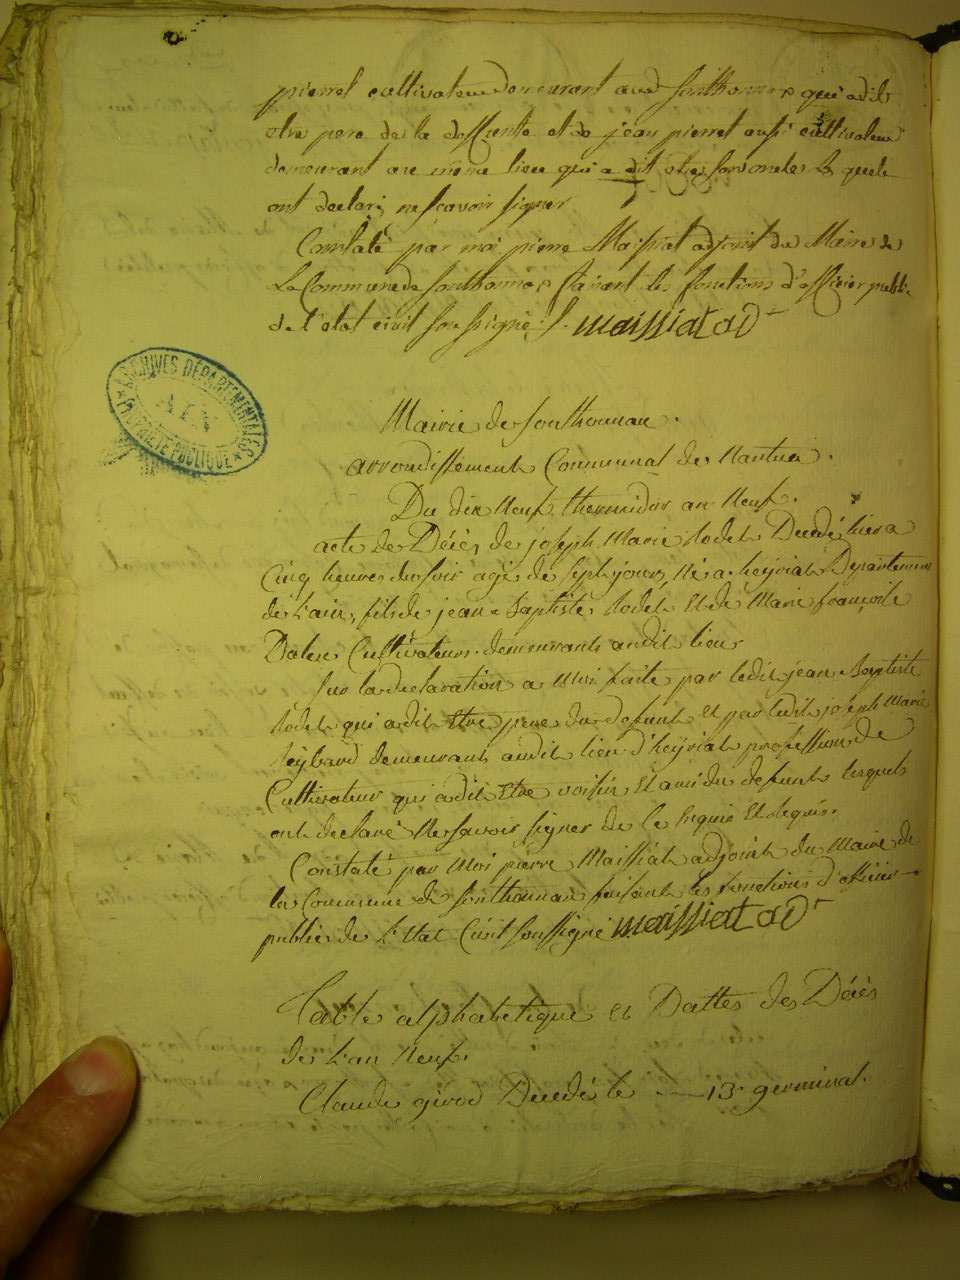 pierrel cultivateur demeurant aud sonthonnax qui a dit
etre pere de la deffunte et de jean pierrel aussi cultivateur
demeurant au meme lieu qui a dit etre son oncle lequels
ont declaré ne scavoir signer
Constaté par moi pierre Maissiat adjoint du Maire de
La Commune de sonthonnax faisant les fonctions d'officier public
de l'etat civil soussigné /. maissiat adt
ARCHIVES DÉPARTEMENTALES
AIN
PROPRIÉTÉ PUBLIQUE
Mairie de sonthonnax.
arrondissement Communal de Nantua.
Du dix Neuf thermidor an Neuf.
acte de Décès de joseph Marie Rodet Decedé hier a
Cinq heures du soir agé de sept jours, Né a heyriat Departement
de L'ain, fils de jean Baptiste Rodet et de Marie françoise
Cultivateurs demeurants audit lieu
Sur la declaration a Moi faite par ledit jean Baptiste
Rodet qui a dit Etre pere du defunt et par ledit joseph Marie
demeurant audit lieu d'heyriat profession de
Cultivateur qui a dit Etre voisin et ami du defunt lesquels
ont declaré Ne savoir signer de Ce Enquis.
Constaté par Moi pierre Maissiat adjoint du Maire de
la Commune de sonthonnax faisant les fonctions d'officier
public de L'Etat Civil soussigné maissiat adt
Table alphabetique et Dattes des Décès
de L'an Neuf.
Claude girod Decedé le — 13. germinal.